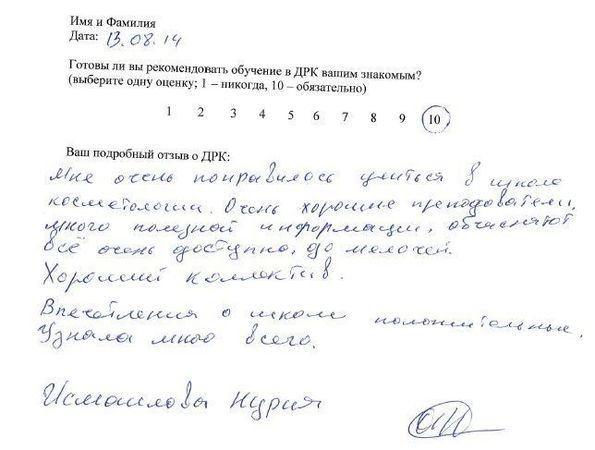 Имя и Фамилия
Дата: 13.08.14
Готовы ли вы рекомендовать обучение в ДРК вашим знакомым?
(выберите одну оценку; 1 – никогда, 10 – обязательно)
1 2 3 4 5 6 7 8 9 10
Ваш подробный отзыв о ДРК:
Мне очень понравилось учиться в школе
косметологии. Очень хорошие преподователи,
много полезной информации, объясняют
всё очень доступно, до мелочей.
Хороший коллектив.
Впечатления о школе положительные.
Узнала много всего.
Исмаилова Нурия